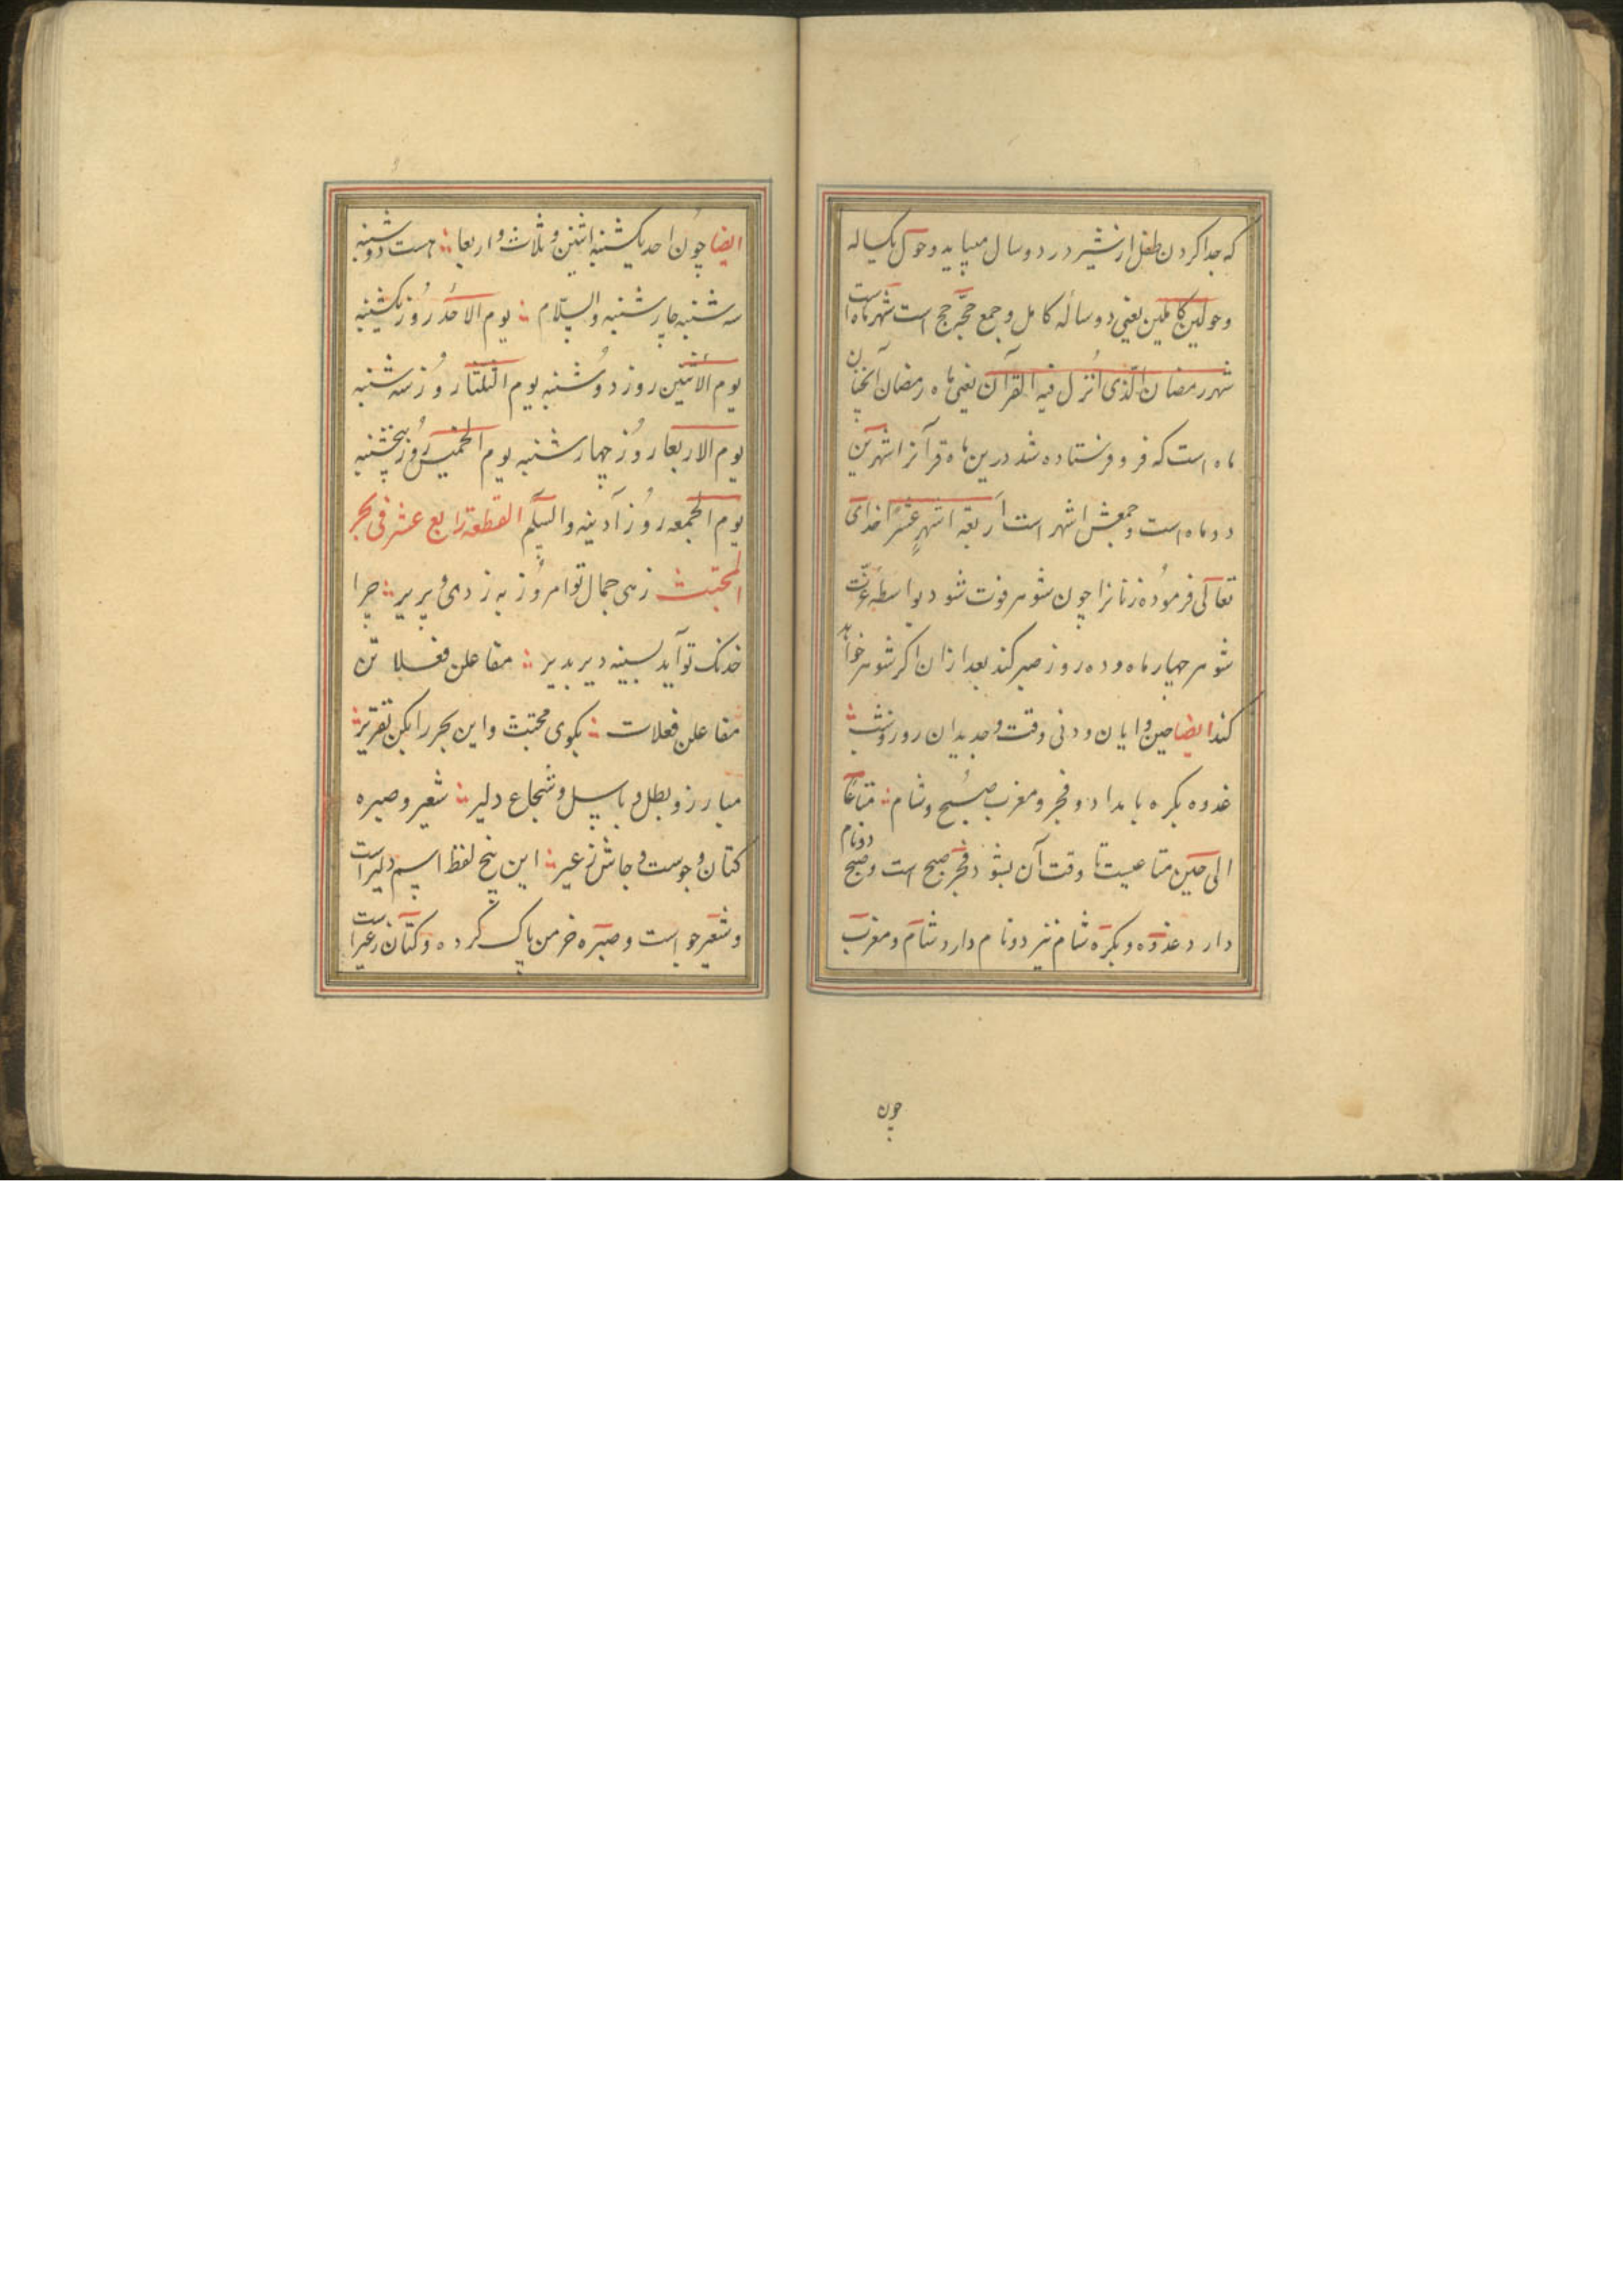 که جدا کردن طفل از شیر در دو سال میباید و حول یکساله
و حولین کاملین یعنی دو ساله کامل و جمع حجر حجج است شهر ماه است
شهر رمضان الذی انزل فیه القرآن یعنی ماه رمضان آنچنان
ماه است که فرو فرستاده شد درین ماه قرآنرا شهرین
دو ماه است و جمعش اشهر است اربعة اشهرٍ عشرًا خدای
تعالی فرموده زنانرا چون شوهر فوت شود بواسطه عزت
شوهر چهار ماه و ده روز صبر کند بعد ازان اکر شوهر خواهد
کند ایضا حین و ایان و دنی وقت و جدیدان روز و شب
غدوه بکره بامداد و فجر و مغرب صبح و شام متاعًا
الی حین متاعیست تا وقت آن بشود فجر صبح است و صبح دو نام
دارد غدوه و بکره شام نیز دو نام دارد شام و مغرب
چون
ایضا چون احد یکشنبه اثنین و ثلاث و اربعا هست دوشنبه
سه شنبه چارشنبه والسلام یوم الاحد روز یکشنبه
یوم الاثنین روز دوشنبه یوم الثلثا روز سه شنبه
یوم الاربعا روز چهارشنبه یوم الخمیس روز پنجشنبه
یوم الجمعه روز آدینه والسلم القطعة رابع عشر فی بحر
المجتث زهی جمال تو امروز به ز دی و پریر چرا
خدنک تو آید بسینه دیر بدیر مفاعلن فعلاتن
مفاعلن فعلات بکوی مجتث و این بحر را بکن تقریر
مبارز و بطل و باسل و شجاع دلیر شعیر و صبره
کتان و جوست و جاش زغیر این پنج لفظ اسم دلیر است
و شعیر جو است و صبره خرمن پاک کرده و کتان زغیر است